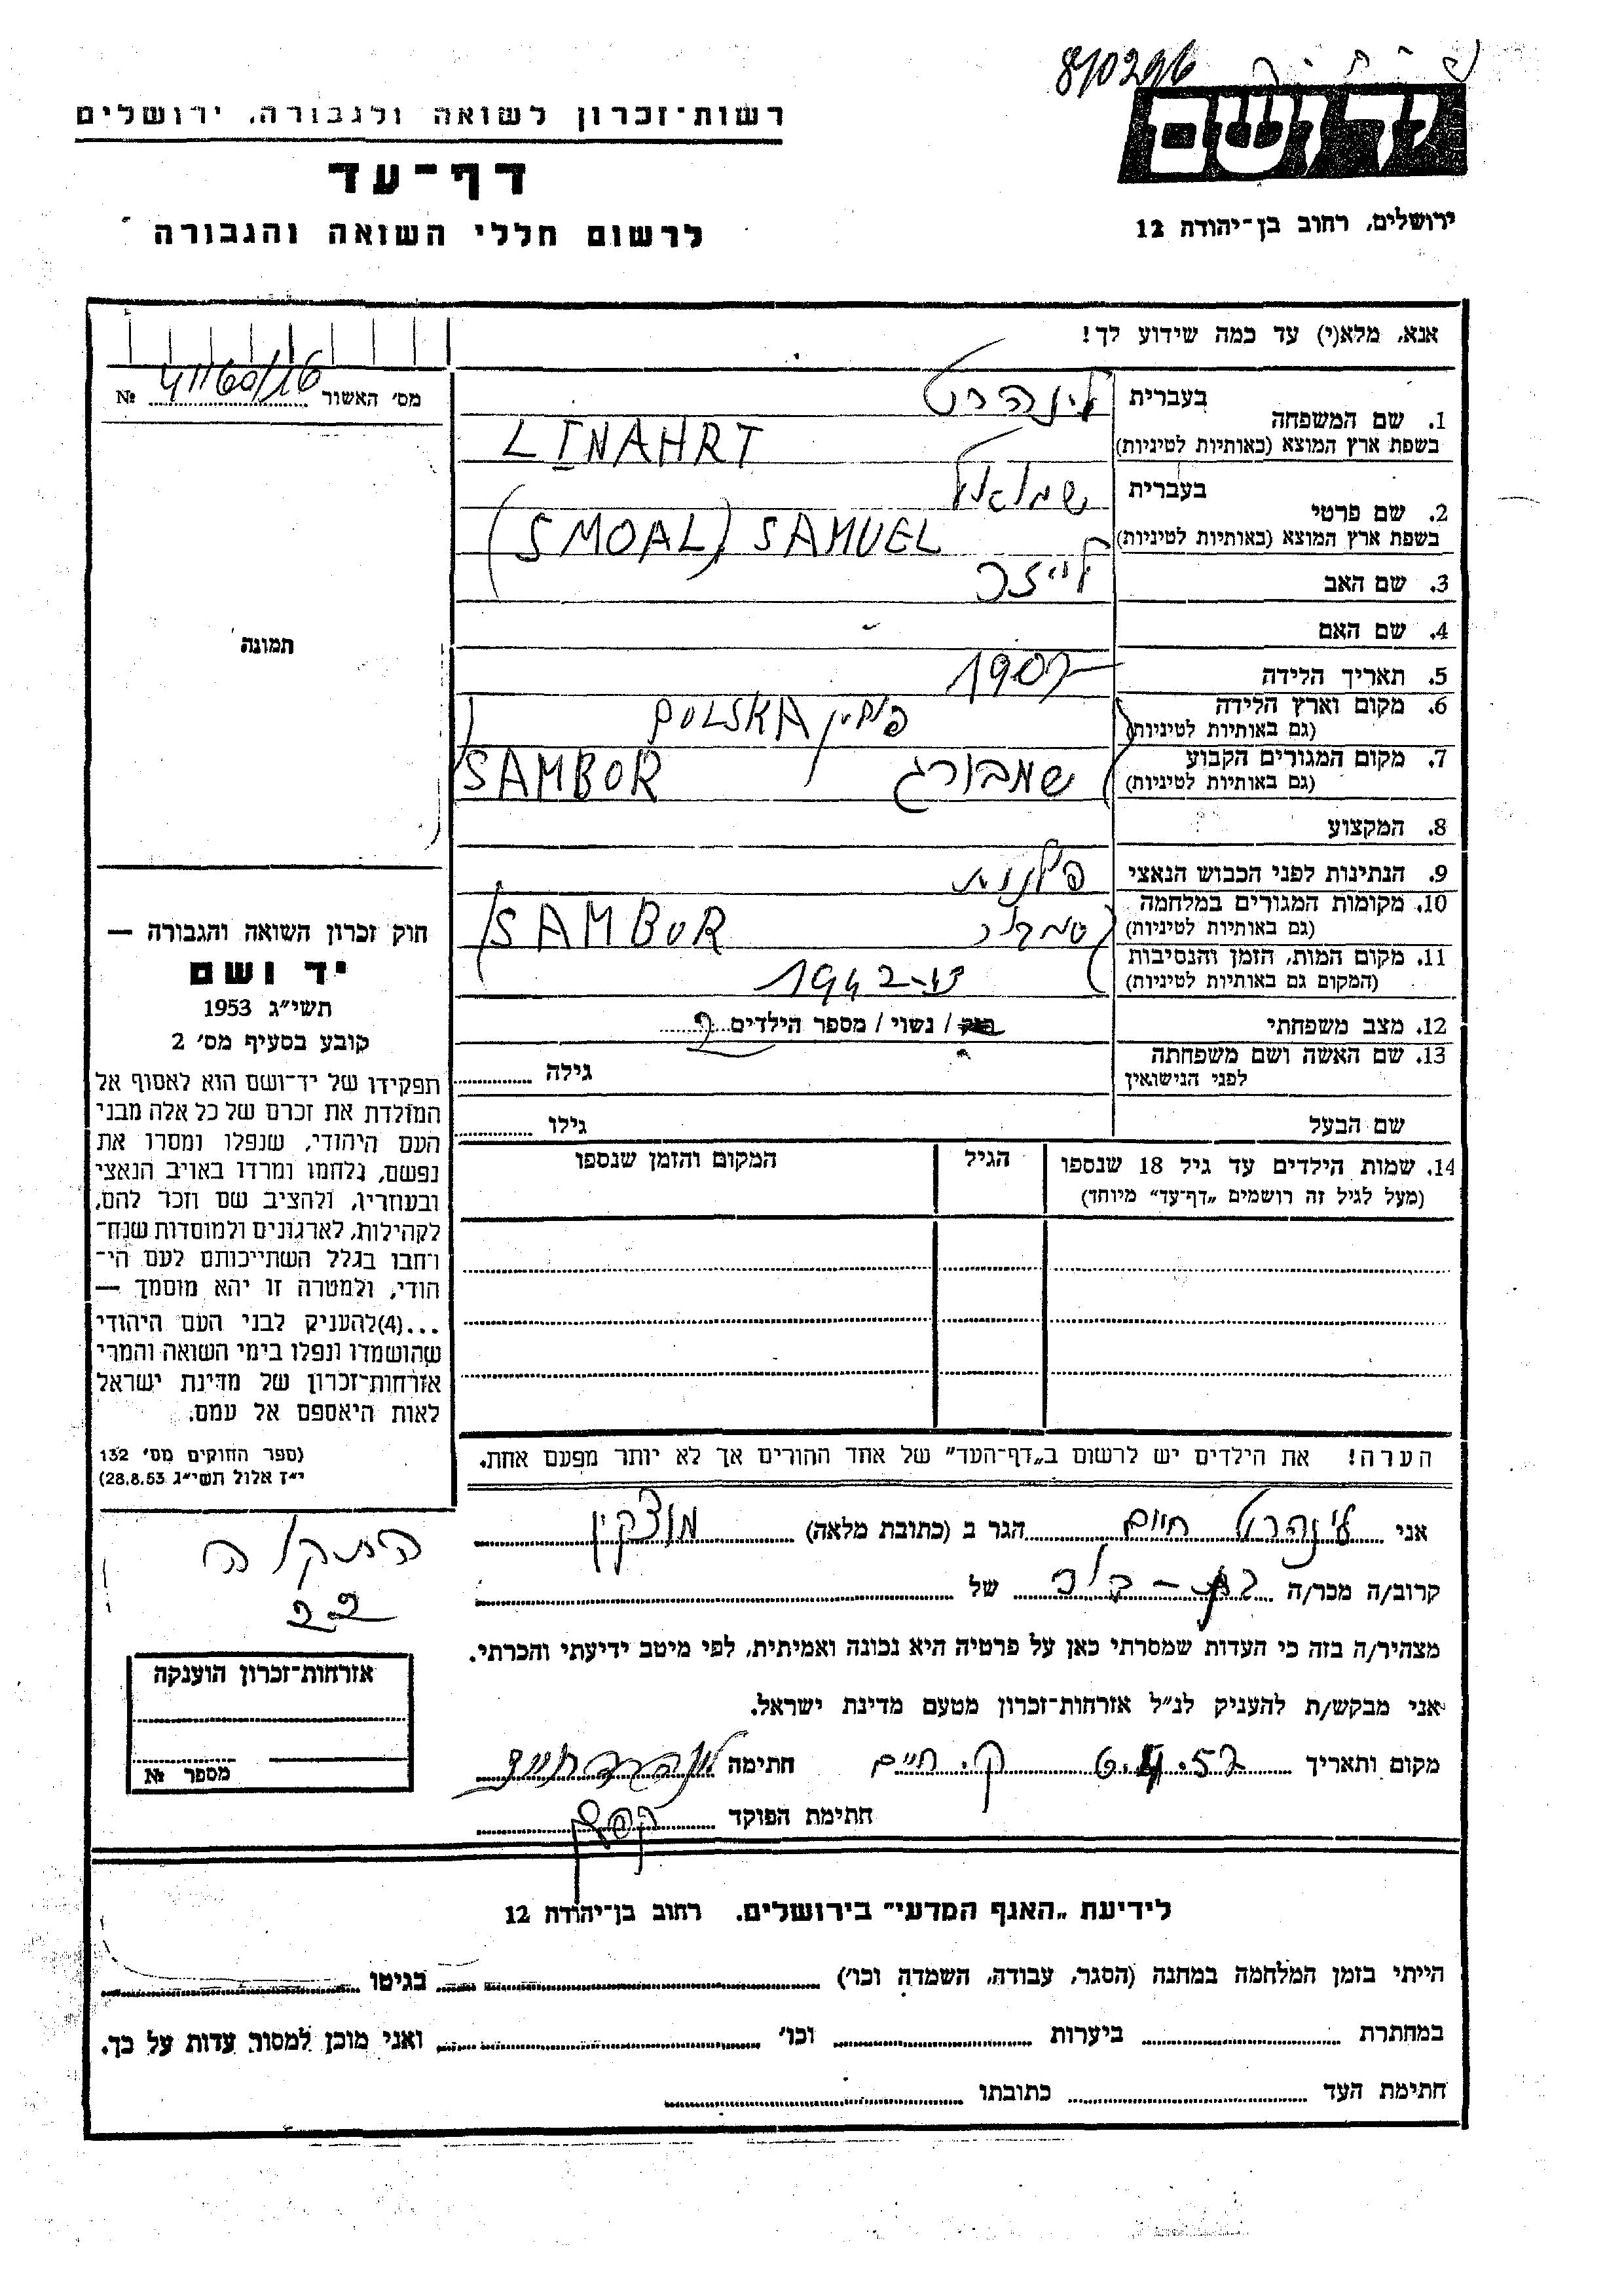 810296
יד ושם
ירושלים, רחוב בן־יהודה 12
רשות־זכרון לשואה ולגבורה, ירושלים
דף־עד
לרשום חללי השואה והגבורה
אנא, מלא(י) עד כמה שידוע לך!
1. שם המשפחה
בעברית לינהרט
בשפת ארץ המוצא (באותיות לטיניות) LINAHRT
2. שם פרטי
בעברית שמואל
בשפת ארץ המוצא (באותיות לטיניות) (SMOAL) SAMUEL
3. שם האב לייזר
4. שם האם
5. תאריך הלידה 1907
6. מקום וארץ הלידה POLSKA פולין
(גם באותיות לטיניות)
7. מקום המגורים הקבוע שמבורג SAMBOR
(גם באותיות לטיניות)
8. המקצוע
9. הנתינות לפני הכבוש הנאצי פולנית
10. מקומות המגורים במלחמה סמבור SAMBOR
(גם באותיות לטיניות)
11. מקום המות, הזמן והנסיבות 1942-43
(המקום גם באותיות לטיניות)
12. מצב משפחתי רוק / נשוי / מספר הילדים
13. שם האשה ושם משפחתה גילה
לפני הנישואין
שם הבעל גילו
14. שמות הילדים עד גיל 18 שנספו הגיל המקום והזמן שנספו
(מעל לגיל זה רושמים „דף־עד״ מיוחד)
הערה! את הילדים יש לרשום ב„דף־העד״ של אחד ההורים אך לא יותר מפעם אחת.
מס׳ האשור 41160/16 №
תמונה
חוק זכרון השואה והגבורה —
יד ושם
תשי״ג 1953
קובע בסעיף מס׳ 2
תפקידו של יד־ושם הוא לאסוף אל
המולדת את זכרם של כל אלה מבני
העם היהודי, שנפלו ומסרו את
נפשם, נלחמו ומרדו באויב הנאצי
ובעוזריו, ולהציב שם וזכר להם,
לקהילות, לארגונים ולמוסדות שנח־
רחבו בגלל השתייכותם לעם הי־
הודי, ולמטרה זו יהא מוסמך —
...(4)להעניק לבני העם היהודי
שהושמדו ונפלו בימי השואה והמרי
אזרחות־זכרון של מדינת ישראל
לאות היאספם אל עמם.
(ספר החוקים מס׳ 132
י״ז אלול תשי״ג 28.8.53)
אני לינהרט חיים הגר ב (כתובת מלאה) מוצקין
התקוה
22
קרוב/ה מכר/ה בן־דוד של
מצהיר/ה בזה כי העדות שמסרתי כאן על פרטיה היא נכונה ואמיתית, לפי מיטב ידיעתי והכרתי.
אני מבקש/ת להעניק לנ״ל אזרחות־זכרון מטעם מדינת ישראל.
מקום ותאריך ק. חיים חתימה לינהרט חיים
חתימת הפוקד
אזרחות־זכרון הוענקה
מספר №
לידיעת „האגף המדעי״ בירושלים, רחוב בן־יהודה 12
הייתי בזמן המלחמה במחנה (הסגר, עבודה, השמדה וכו׳) בגיטו
במחתרת ביערות וכו׳ ואני מוכן למסור עדות על כך.
חתימת העד כתובתו